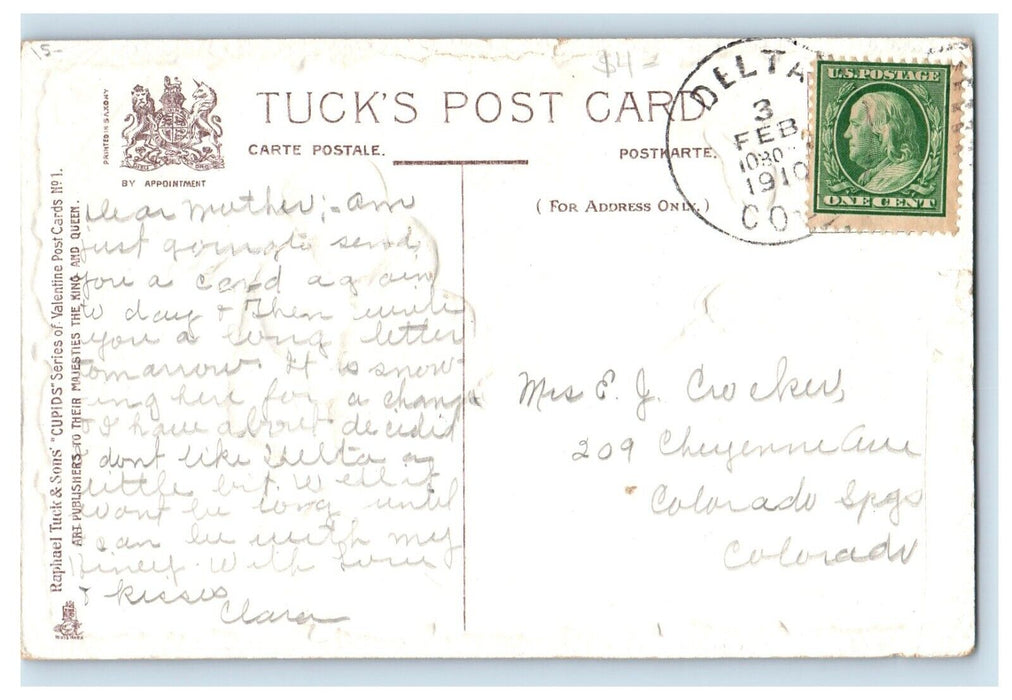 15-
$4-
TUCK'S POST CARD
CARTE POSTALE.
POSTKARTE.
BY APPOINTMENT
PRINTED IN SAXONY
(FOR ADDRESS ONLY.)
Raphael Tuck & Sons' "CUPIDS" Series of Valentine Post Cards No 1.
ART PUBLISHERS TO THEIR MAJESTIES THE KING AND QUEEN.
DELTA
3
FEB
1030
1910
COLO
U.S. POSTAGE
ONE CENT
Dear Mother;- am
just going to send
you a card again
to day & then write
you a long letter
tomarrow. It is snow-
ing here for a change
I have about decidid
I dont like Delta a
little bit. Well it
wont be long until
I can be with my
With love
& kisses
Clara
Mrs E. J. Crocker,
209 Cheyenne Ave
Colorado Spgs
Colorado